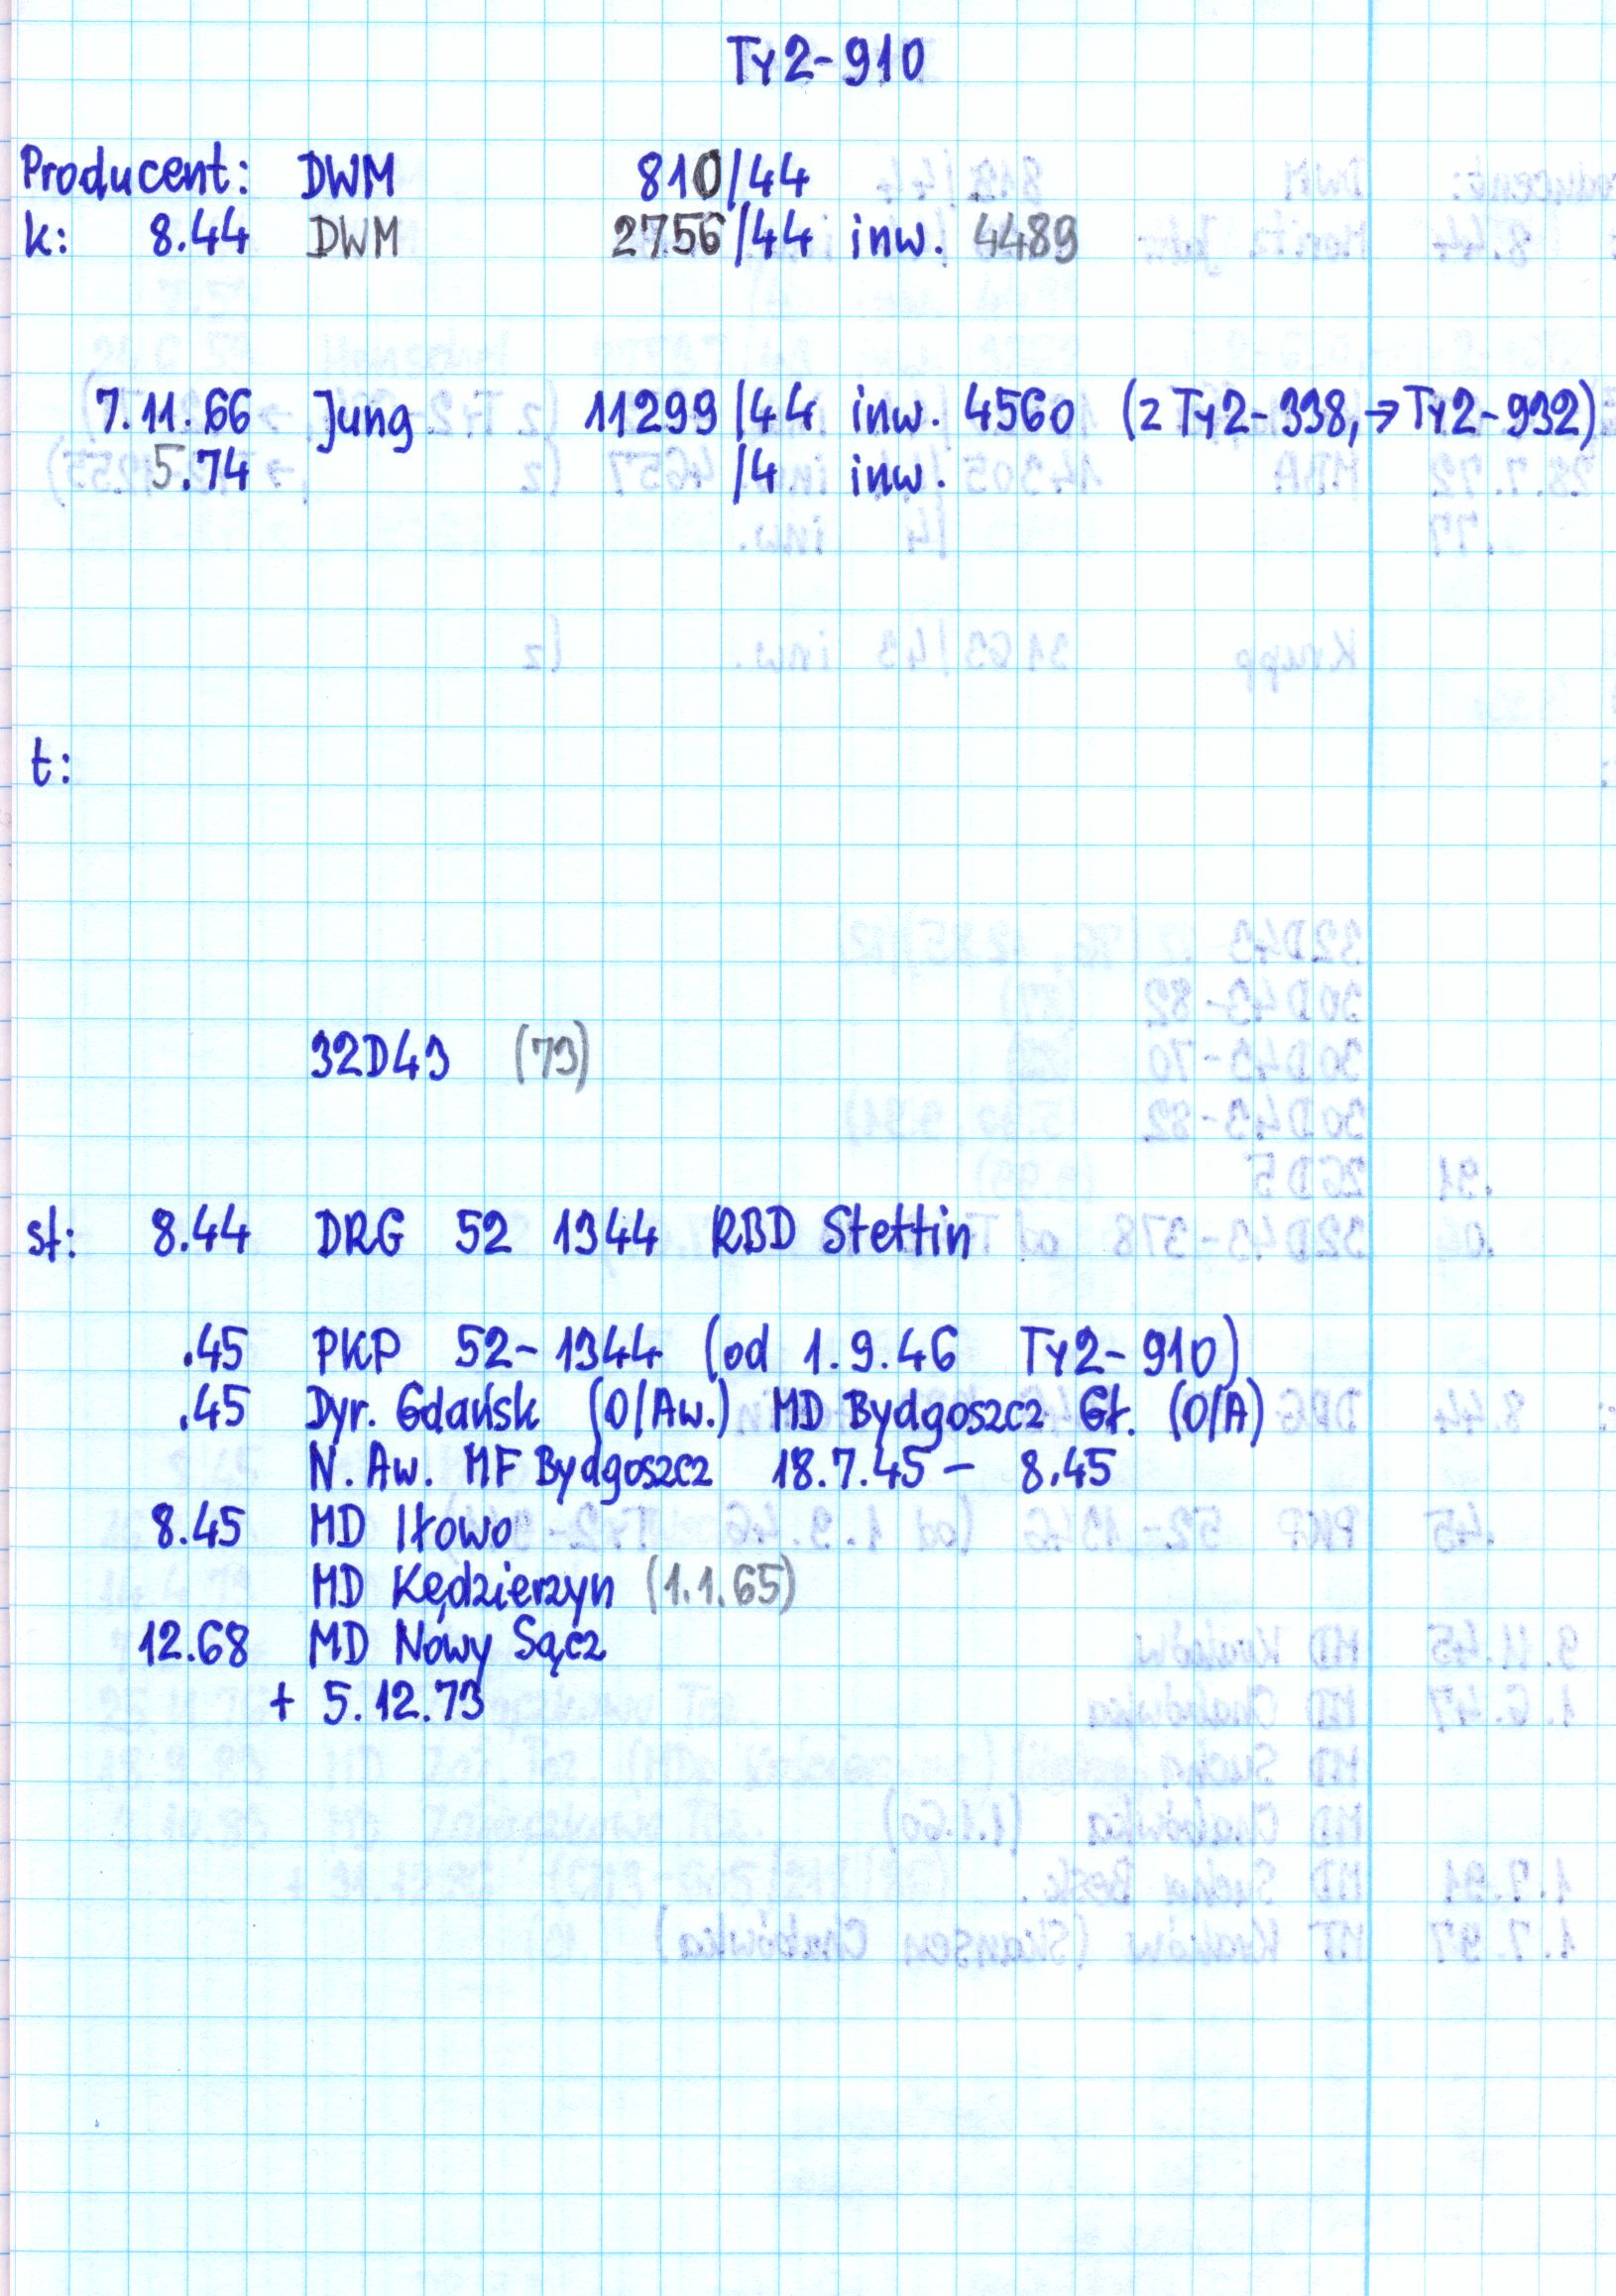 Ty2-910
Producent: DWM 810/44
k: 8.44 DWM 2756/44 inw. 4489
7.11.66 Jung 11299/44 inw. 4560 (z Ty2-338, → Ty2-932)
5.74 /4 inw.
t:
32D43 (73)
st: 8.44 DRG 52 1344 RBD Stettin
.45 PKP 52-1344 (od 1.9.46 Ty2-910)
.45 Dyr. Gdańsk (O/Aw.) MD Bydgoszcz Gł. (O/A)
N. Aw. MF Bydgoszcz 18.7.45 - 8.45
8.45 MD Iłowo
MD Kędzierzyn (1.1.65)
12.68 MD Nowy Sącz
+ 5.12.73